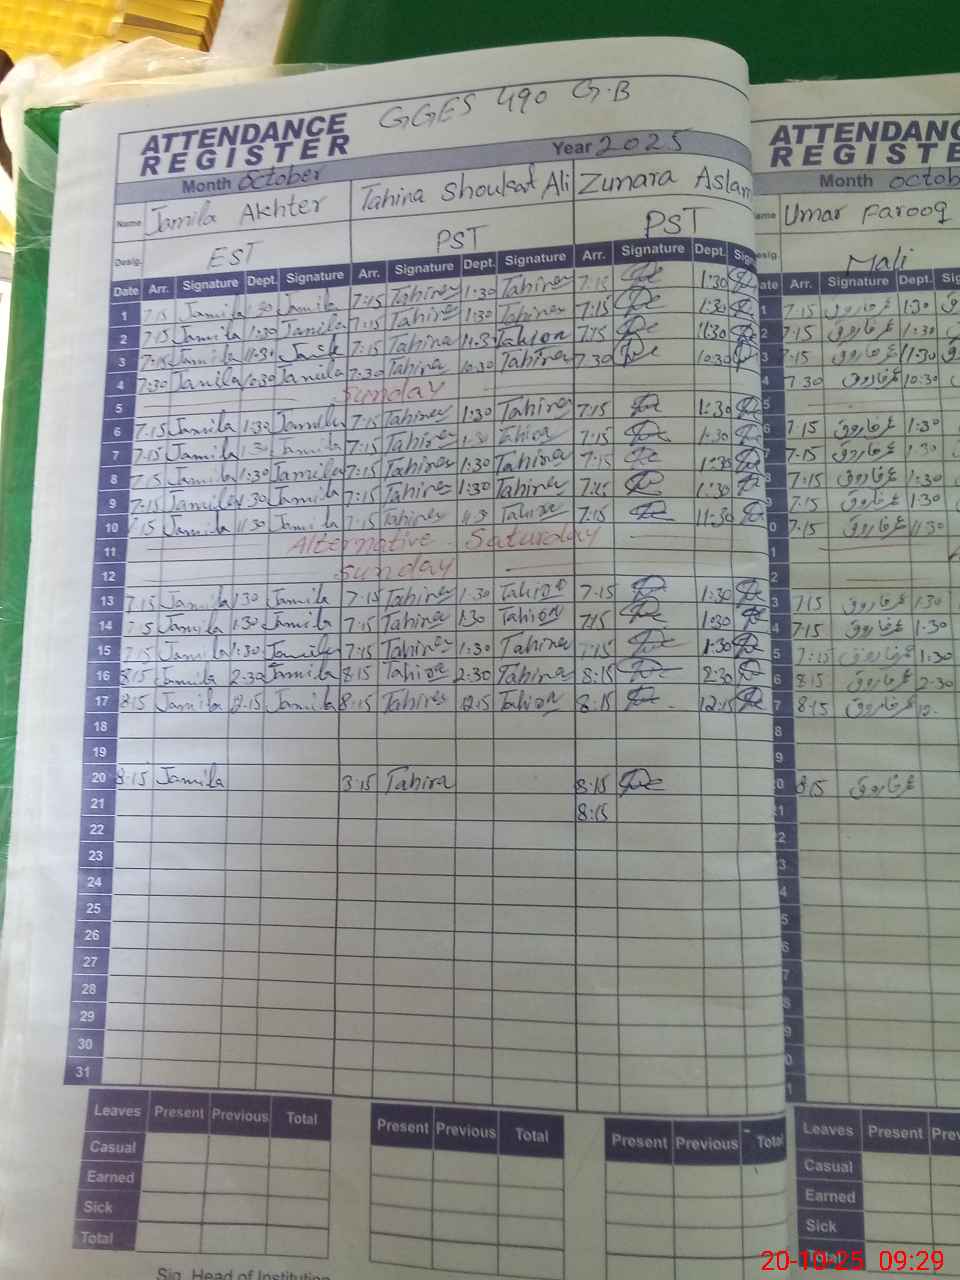 GGES 490 G.B
ATTENDANCE REGISTER
Year 2025
Month October
Name Jamila Akhter Tahira Shoukat Ali Zunara Aslam
Desig. EST PST PST
Date Arr. Signature Dept. Signature Arr. Signature Dept. Signature Arr. Signature Dept.
1 7:15 Jamila 1:30 Jamila 7:15 Tahira 1:30 Tahira 7:15 1:30
2 7:15 Jamila 1:30 Jamila 7:15 Tahira 1:30 Tahira 7:15 1:30
3 7:15 Jamila 11:30 7:15 Tahira 11:30 Tahira 7:15 11:30
4 7:30 Jamila 10:30 Jamila 7:30 Tahira 10:30 Tahira 7:30 10:30
5 Sunday
6 7:15 Jamila 1:30 Jamila 7:15 Tahira 1:30 Tahira 7:15 1:30
7 7:15 Jamila 1:30 Jamila 7:15 Tahira 1:30 Tahira 7:15 1:30
8 7:15 Jamila 1:30 Jamila 7:15 Tahira 1:30 Tahira 7:15 1:30
9 7:15 Jamila 1:30 Jamila 7:15 Tahira 1:30 Tahira 7:15 1:30
10 7:15 Jamila 11:30 Jamila 7:15 Tahira 11:3 Tahira 7:15 11:30
11 Alternative Saturday
12 Sunday
13 7:15 Jamila 1:30 Jamila 7:15 Tahira 1:30 Tahira 7:15 1:30
14 7:15 Jamila 1:30 Jamila 7:15 Tahira 1:30 Tahira 7:15 1:30
15 7:15 Jamila 1:30 Jamila 7:15 Tahira 1:30 Tahira 7:15 1:30
16 8:15 Jamila 2:30 Jamila 8:15 Tahira 2:30 Tahira 8:15 2:30
17 8:15 Jamila 12:15 Jamila 8:15 Tahira 12:15 Tahira 8:15 12:15
18
19
20 8:15 Jamila 8:15 Tahira 8:15
21 8:15
22
23
24
25
26
27
28
29
30
31
Leaves Present Previous Total Present Previous Total Present Previous Total
Casual
Earned
Sick
Total
Sig. Head of Institution
ATTENDANC
REGISTE
Month Octob
Umar Farooq
Mali
Arr. Signature Dept.
7:15 عمرفاروق 1:30
7:15 عمرفاروق 1:30
7:15 عمرفاروق 11:30
7:30 عمرفاروق 10:30
7:15 عمرفاروق 1:30
7:15 عمرفاروق 1:30
7:15 عمرفاروق 1:30
7:15 عمرفاروق 1:30
7:15 عمرفاروق 11:30
7:15 عمرفاروق 1:30
7:15 عمرفاروق 1:30
7:15 عمرفاروق 1:30
8:15 عمرفاروق 2:30
8:15 عمرفاروق 12.
8:15 عمرفاروق
Leaves Present Pre
Casual
Earned
Sick
Total
20-10-25 09:29